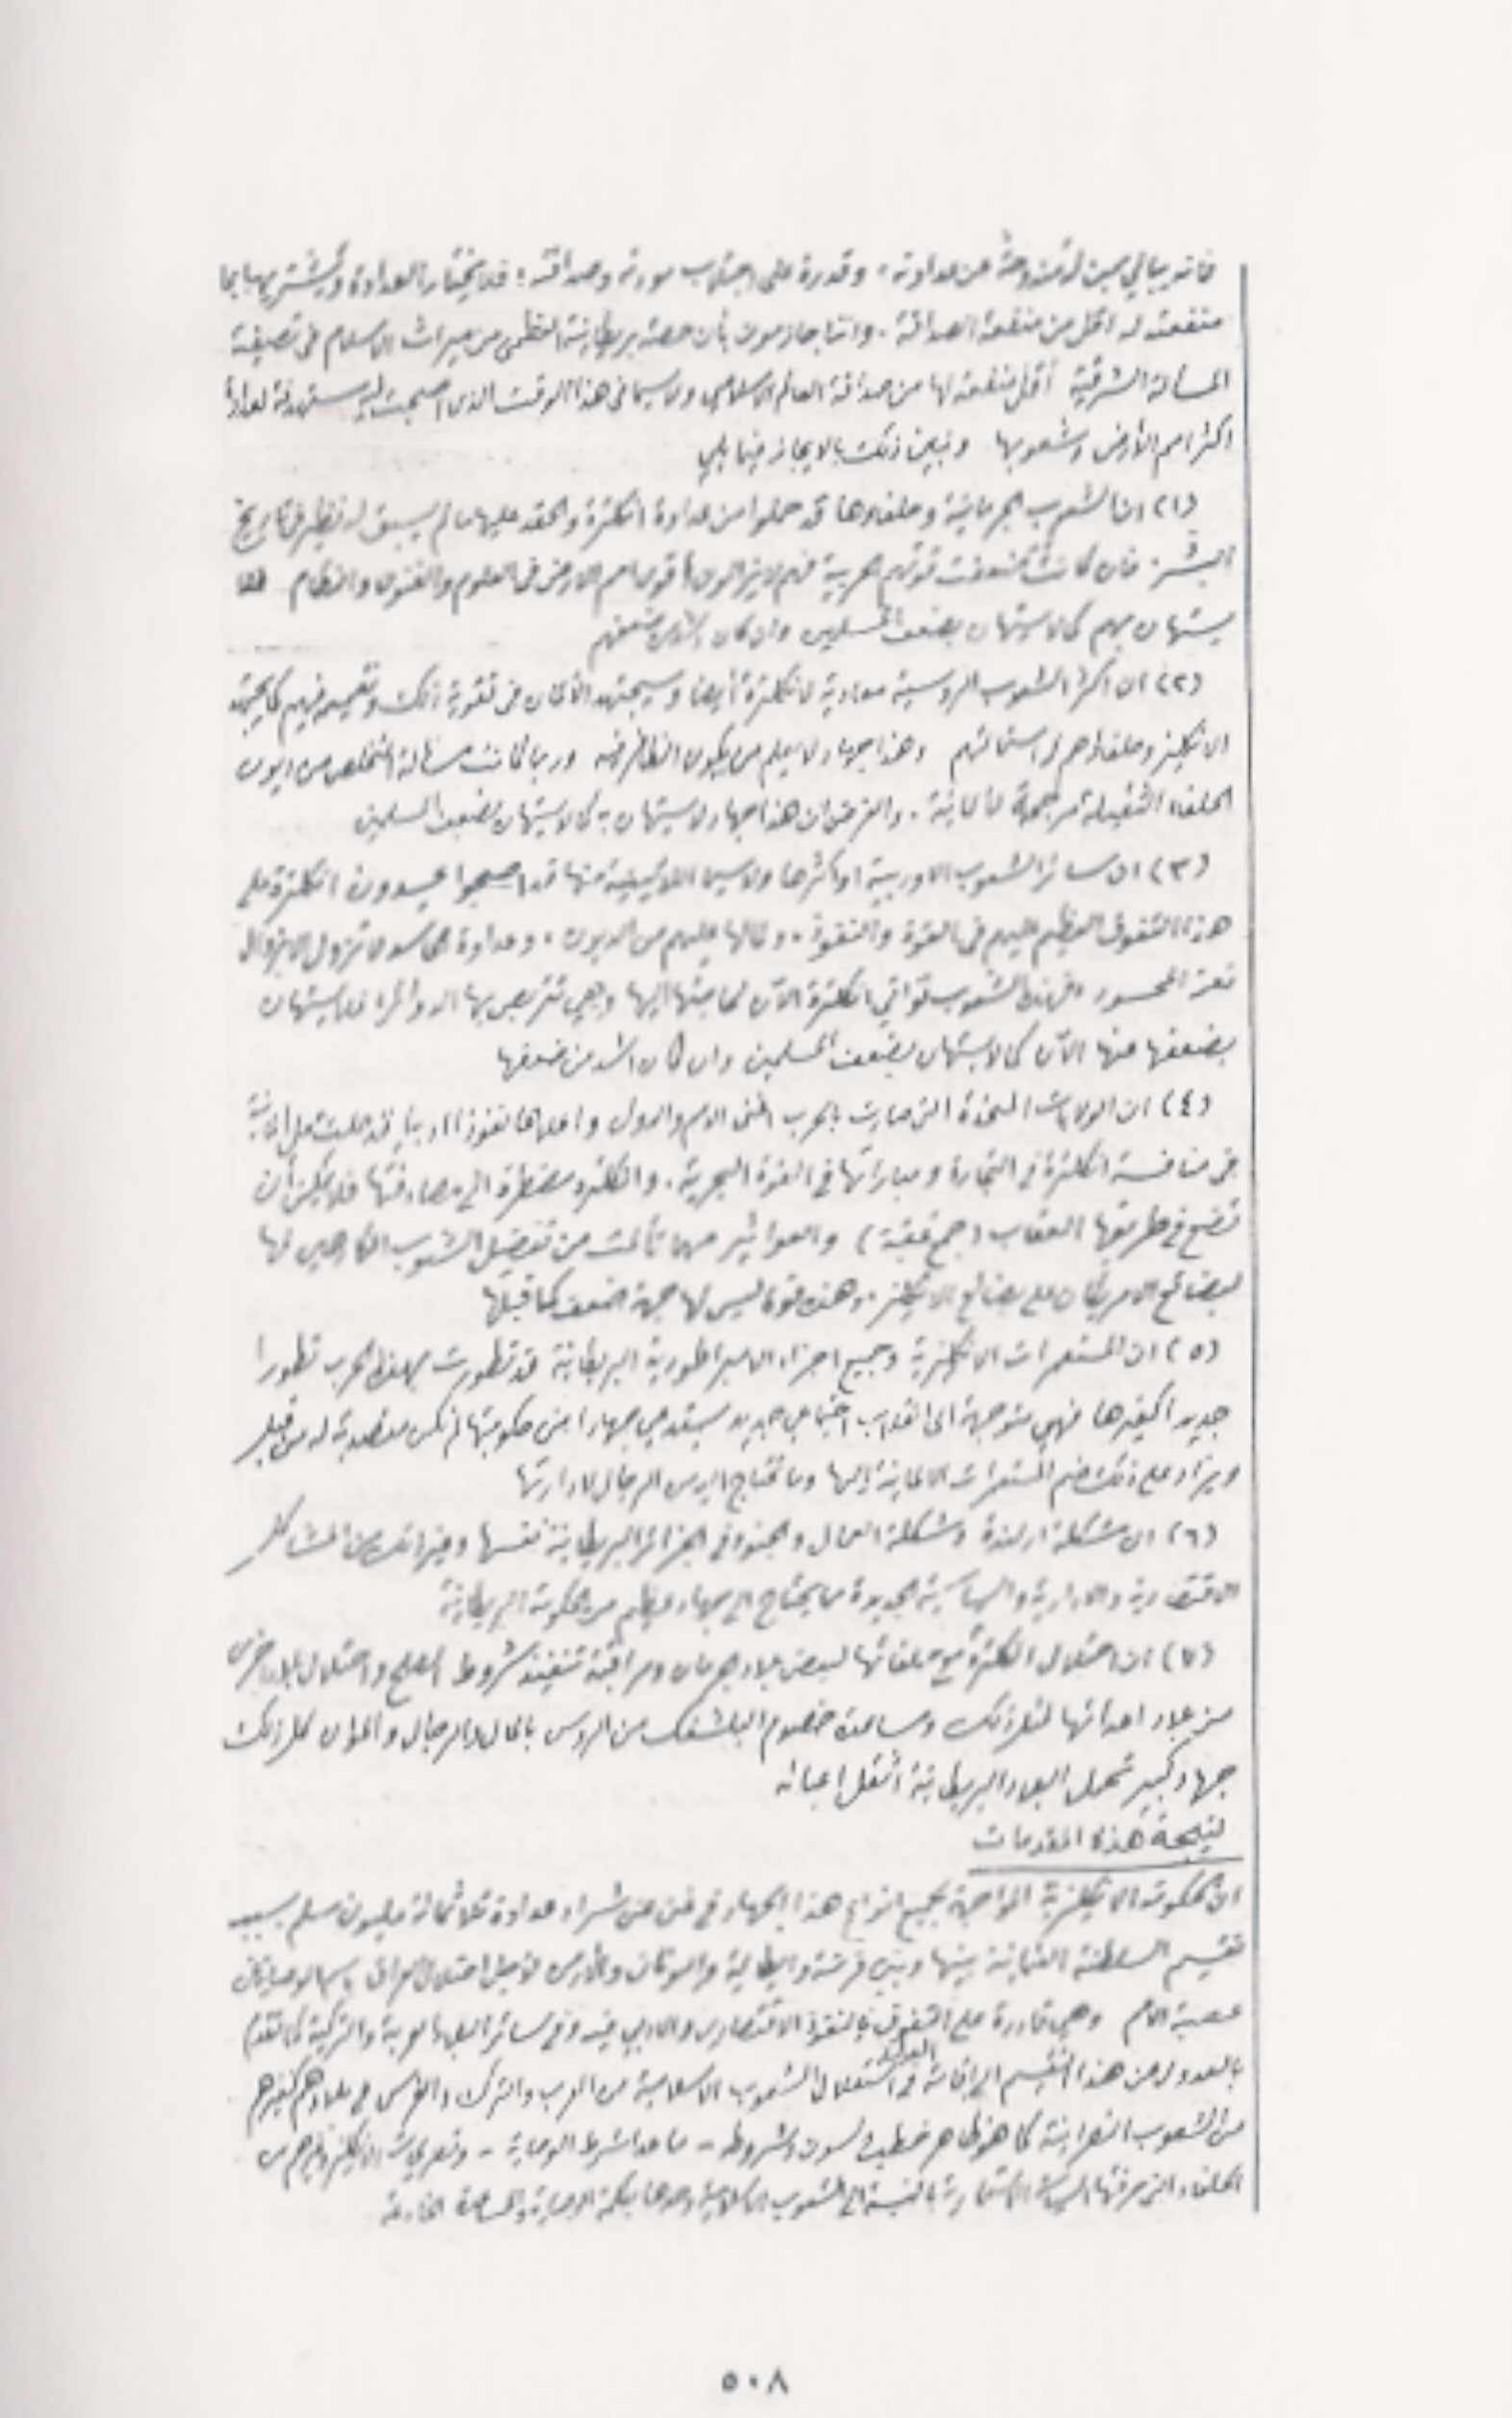 فانه يبالي بمن له مندوحة عن عداوته، وقدرة على اجتلاب مودته وصداقته، فلا يختار العداوة ويشتريها بما
منفعته له اقل من منفعة الصداقة. واننا جازمون بأن حصة بريطانية العظمى من ميراث الاسلام في تصفية
المسألة الشرقية أقل منفعة لها من صداقة العالم الاسلامي ولا سيما في هذا الوقت الذي اصبحت فيه مستهدفة لعداوة
اكثر امم الأرض وشعوبها ونبين ذلك بالايجاز فيما يلي
(١) ان الشعوب الجرمانية وحلفاءها قد حملوا من عداوة انكلترة والحقد عليها ما لم يسبق له نظير في تاريخ
البشر. فان كانت ضعفت قوتهم الحربية فهم لا يزالون أقوى امم الارض في العلوم والفنون والنظام فلا
يستهان بهم كما لا يستهان بضعف المسلمين وان كان اشد من ضعفهم
(٢) ان اكثر الشعوب الروسية معادية لانكلترة أيضا وسيجتهد الألمان في تقوية ذلك وتعميمه فيهم كما يجتهد
الانكليز وحلفاؤهم في استمالتهم وهذا جهاد لا يعلم من يكون الظافر فيه وربما كانت مسألة التخلص من ديون
الحلفاء الثقيلة مرجحة لألمانية. والغرض ان هذا جهاد لا يستهان به كما لا يستهان بضعف المسلمين
(٣) ان سائر الشعوب الاوربية او اكثرها ولا سيما اللاتينية منها قد اصبحوا يحسدون انكلترة على
هذا التفوق العظيم عليهم في القوة والنفوذ. وما لها عليهم من الديون. وعداوة الحاسد لا تزول الا بزوال
نعمة المحسود فهذه الشعوب تواتي انكلترة الآن لحاجتها اليها وهي تتربص بها الدوائر، فلا يستهان
بضعفها عنها الآن كما لا يستهان بضعف المسلمين وان كان اشد من ضعفها
(٤) ان الولايات المتحدة التي صارت بالحرب اغنى الامم والدول واعلاها نفوذا ادبيا، قد حلت محل المانية
في منافسة انكلترة في التجارة ومباراتها في القوة البحرية. وانكلترة مضطرة الى مصادقتها فلا يمكن أن
تضع في طريقها العقاب (جمع عقبة) والعواثير مهما تألمت من تفضيل الشعوب الكارهين لها
لبضائع الامريكان على بضائع الانكليز. وهذه قوة ليس لها جهة الضعف كما قبلها
(٥) ان المستعمرات الانكليزية وجميع اجزاء الامبراطورية البريطانية قد تطورت بهذه الحرب تطورا
جديدا كغيرها فهي متوجهة الى انقلاب اجتماعي جديد يستدعي جهادا من حكومتها لم تكن متصدية له من قبل
ويزاد على ذلك ضم المستعمرات الالمانية اليها وما تحتاج اليه من الرجال لادارتها
(٦) ان مشكلة ارلندة ومشكلة العمال والجنود في الجزائر البريطانية نفسها وغير ذلك من المشاكل
الاقتصادية والادارية والسياسية الجديدة مما يحتاج الى جهاد عظيم من الحكومة البريطانية
(٧) ان احتلال انكلترة مع حلفائها لبعض بلاد جرمان ومراقبة تنفيذ شروط الصلح واحتلال بلاد اخرى
من بلاد اعدائها لمثل ذلك ومساعدة خصوم البلشفك من الروس بالمال والرجال والمؤن كل ذلك
جهاد كبير تحمل البلاد البريطانية أثقل اعبائه
نتيجة هذه المقدمات
ان الحكومة الانكليزية المواجهة لجميع انواع هذا الجهاد في غنى عن شراء عداوة ثلاثمائة مليون مسلم بسبب
تقسيم السلطنة العثمانية بينها وبين فرنسة وايطالية واليونان والأرمن لأجل احتلال العراق باسم الوصاية من
عصبة الامم وهي قادرة على التفوق بالنفوذ الاقتصادي والادبي فيه وفي سائر البلاد العربية والتركية كما تقدم
بالعدول عن هذا التقسيم الى استقلال الشعوب الاسلامية من العرب والترك والفرس في بلادهم كغيرهم
من الشعوب النصرانية كما هو ظاهر خطب ولسون وشروطه - ما عدا شرط الوصاية - وتصريحات الانكليز وغيرهم من
الحلفاء التي السياسة الاستعمارية بالنسبة الى الشعوب الاسلامية وحدها بكلمة الوصاية والمساعدة الخادعة
٥٠٨